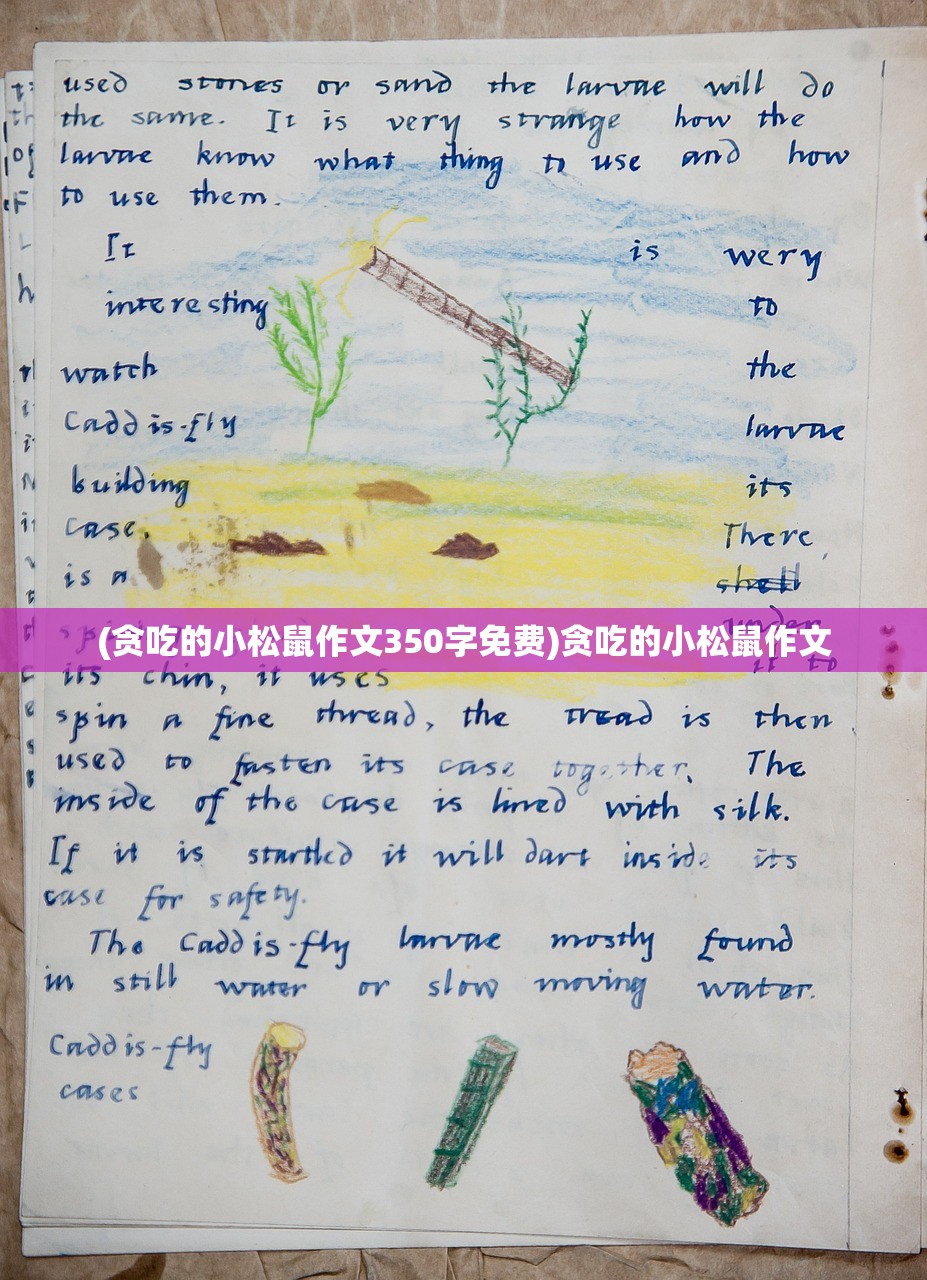 used stones or sand the larvae will do
the same. It is very strange how the
larvae know what thing to use and how
to use them.
It is wery
interesting to
watch the
Caddis-fly larvae
building its
case. There
is a shell
under
(贪吃的小松鼠作文350字免费)贪吃的小松鼠作文
its chin, it uses it to
spin a fine thread, the tread is then
used to fasten its case together. The
inside of the case is lined with silk.
If it is startled it will dart inside its
case for safety.
The Caddis-fly larvae mostly found
in still water or slow moving water.
Caddis-fly
cases